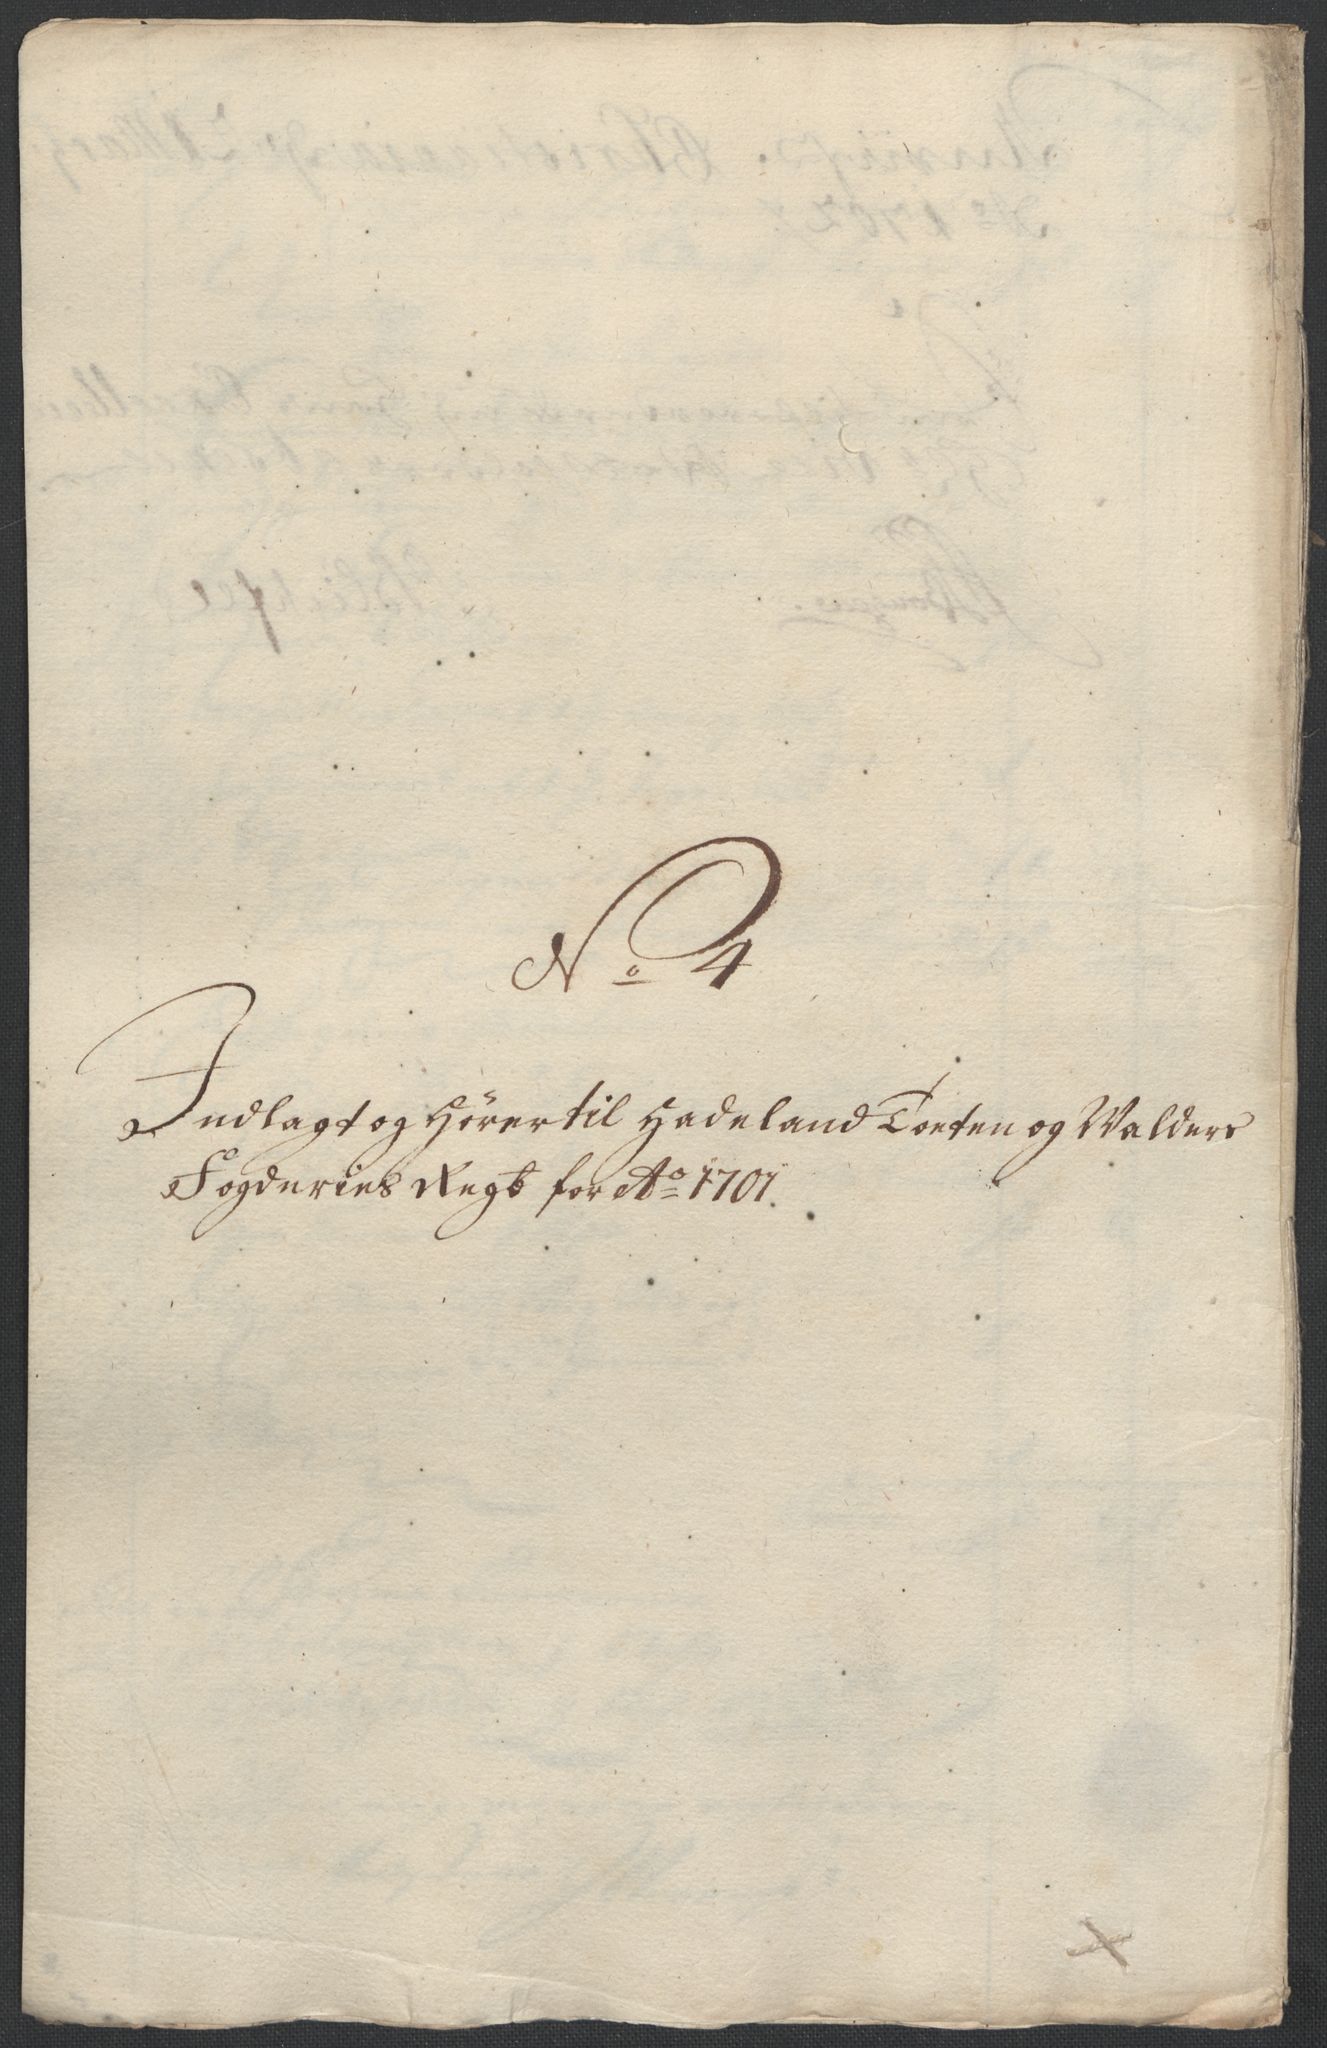 No 4
Indlagt og Hörer til Hadeland Toeten og Walders
Fogderies Regb for Ao 1701.